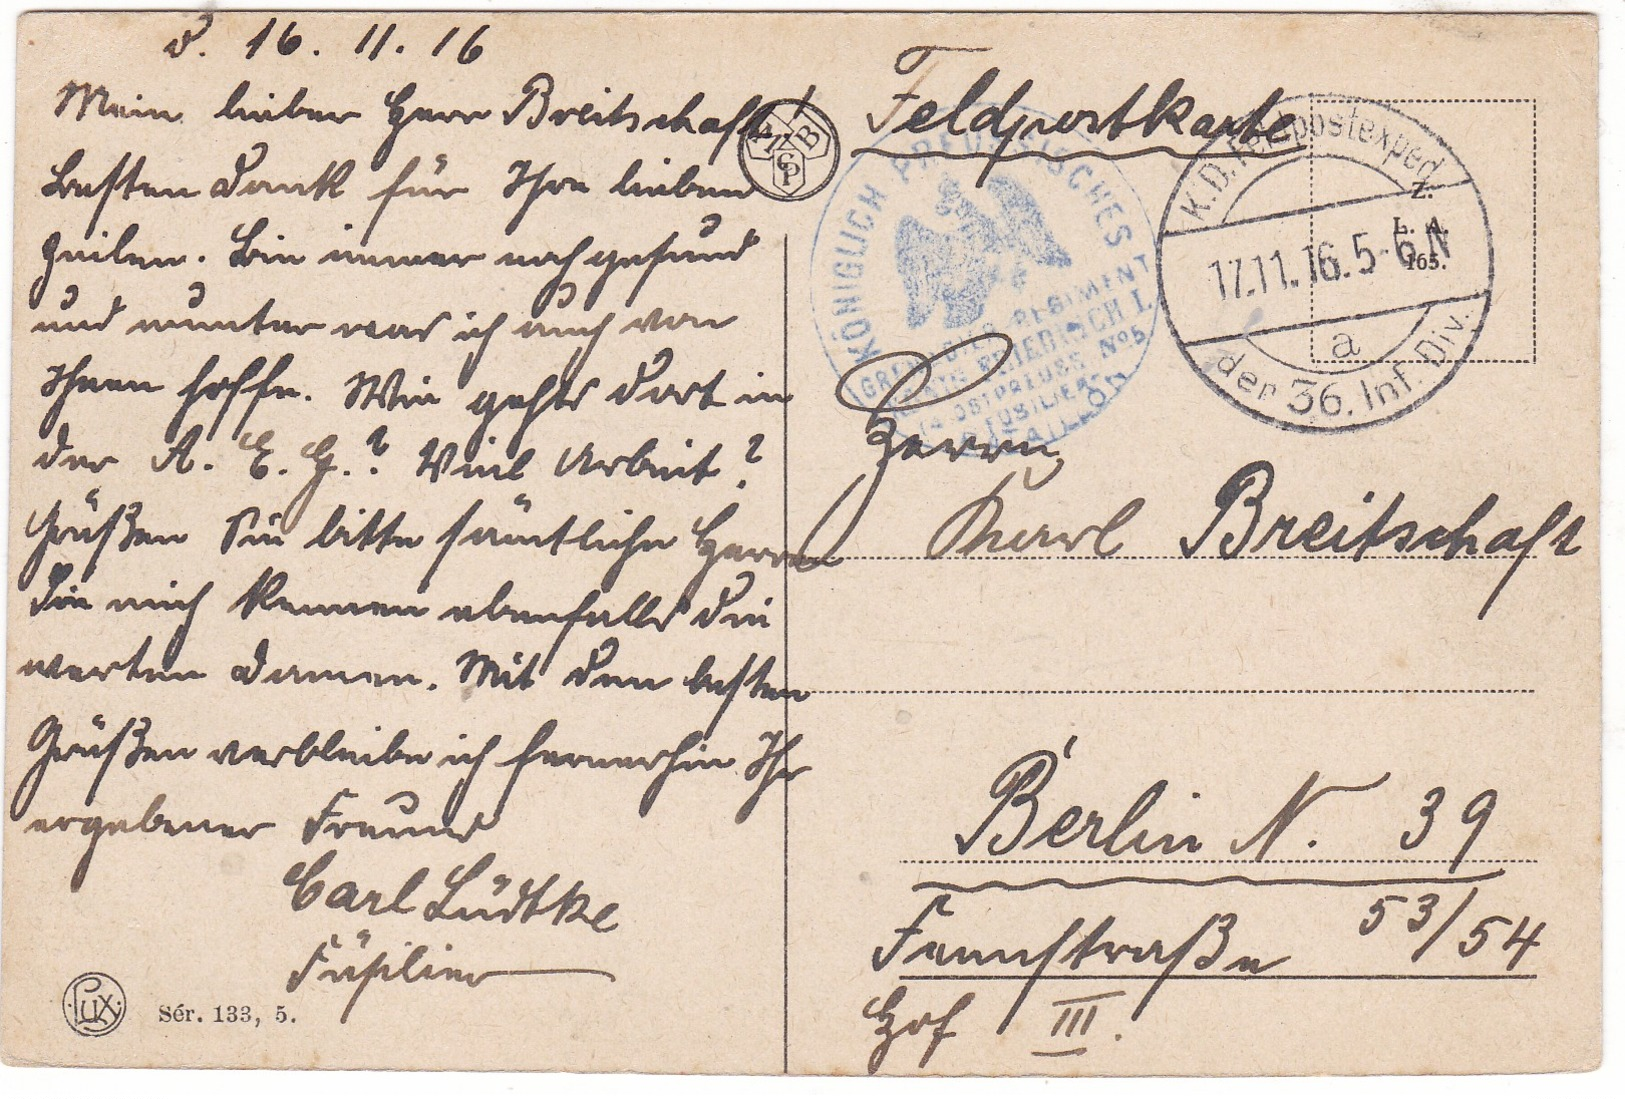 d. 16. 11. 16
Mein lieber Herr Breitschaft!
Besten Dank für Ihre lieben
Zeilen. Bin immer noch gesund
und munter was ich auch von
Ihnen hoffe. Wie gehts dort in
der A. E. G.? Viel Arbeit?
Grüßen Sie bitte sämtliche Herren
die mich kennen ebenfalls die
werten Damen. Mit den besten
Grüßen verbleibe ich fernerhin Ihr
ergebener Freund
Carl Lüdtke
Füsilier
Lux
Sér. 133, 5.
Feldpostkarte
KÖNIGLICH PREUSSISCHES
GRENADIER REGIMENT
KÖNIG FRIEDRICH I.
(4. OSTPREUSS. No 5
FÜSILIER
BATAILLON
K.D. Feldpostexped.
17.11.16. 5-6 N
a
der 36. Inf. Div.
Z.
L. A.
165.
Herrn
Karl Breitschaft
Berlin N. 39
Fennstraße 53/54
Hof III.